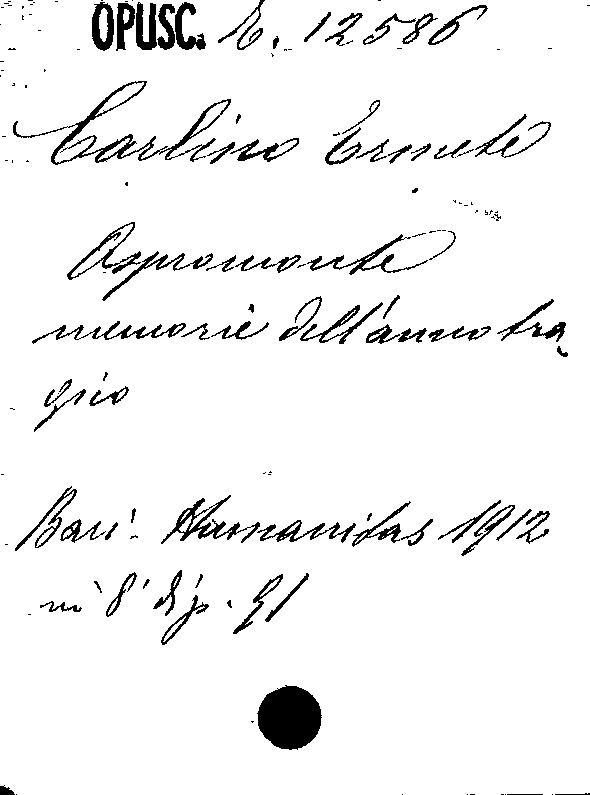 OPUSC. E. 12586
Carlino Ermete
Aspromonte
memorie dell'anno tra
gico
Bari - Humanitas 1912
in 8° di p. 91